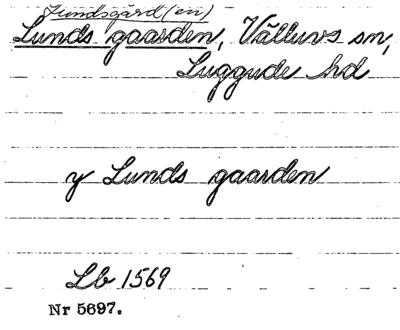 Lundsgård(en)
Lunds gaarden, Välluvs sn,
Luggude hd
y Lunds gaarden
Lb 1569
Nr 5697.